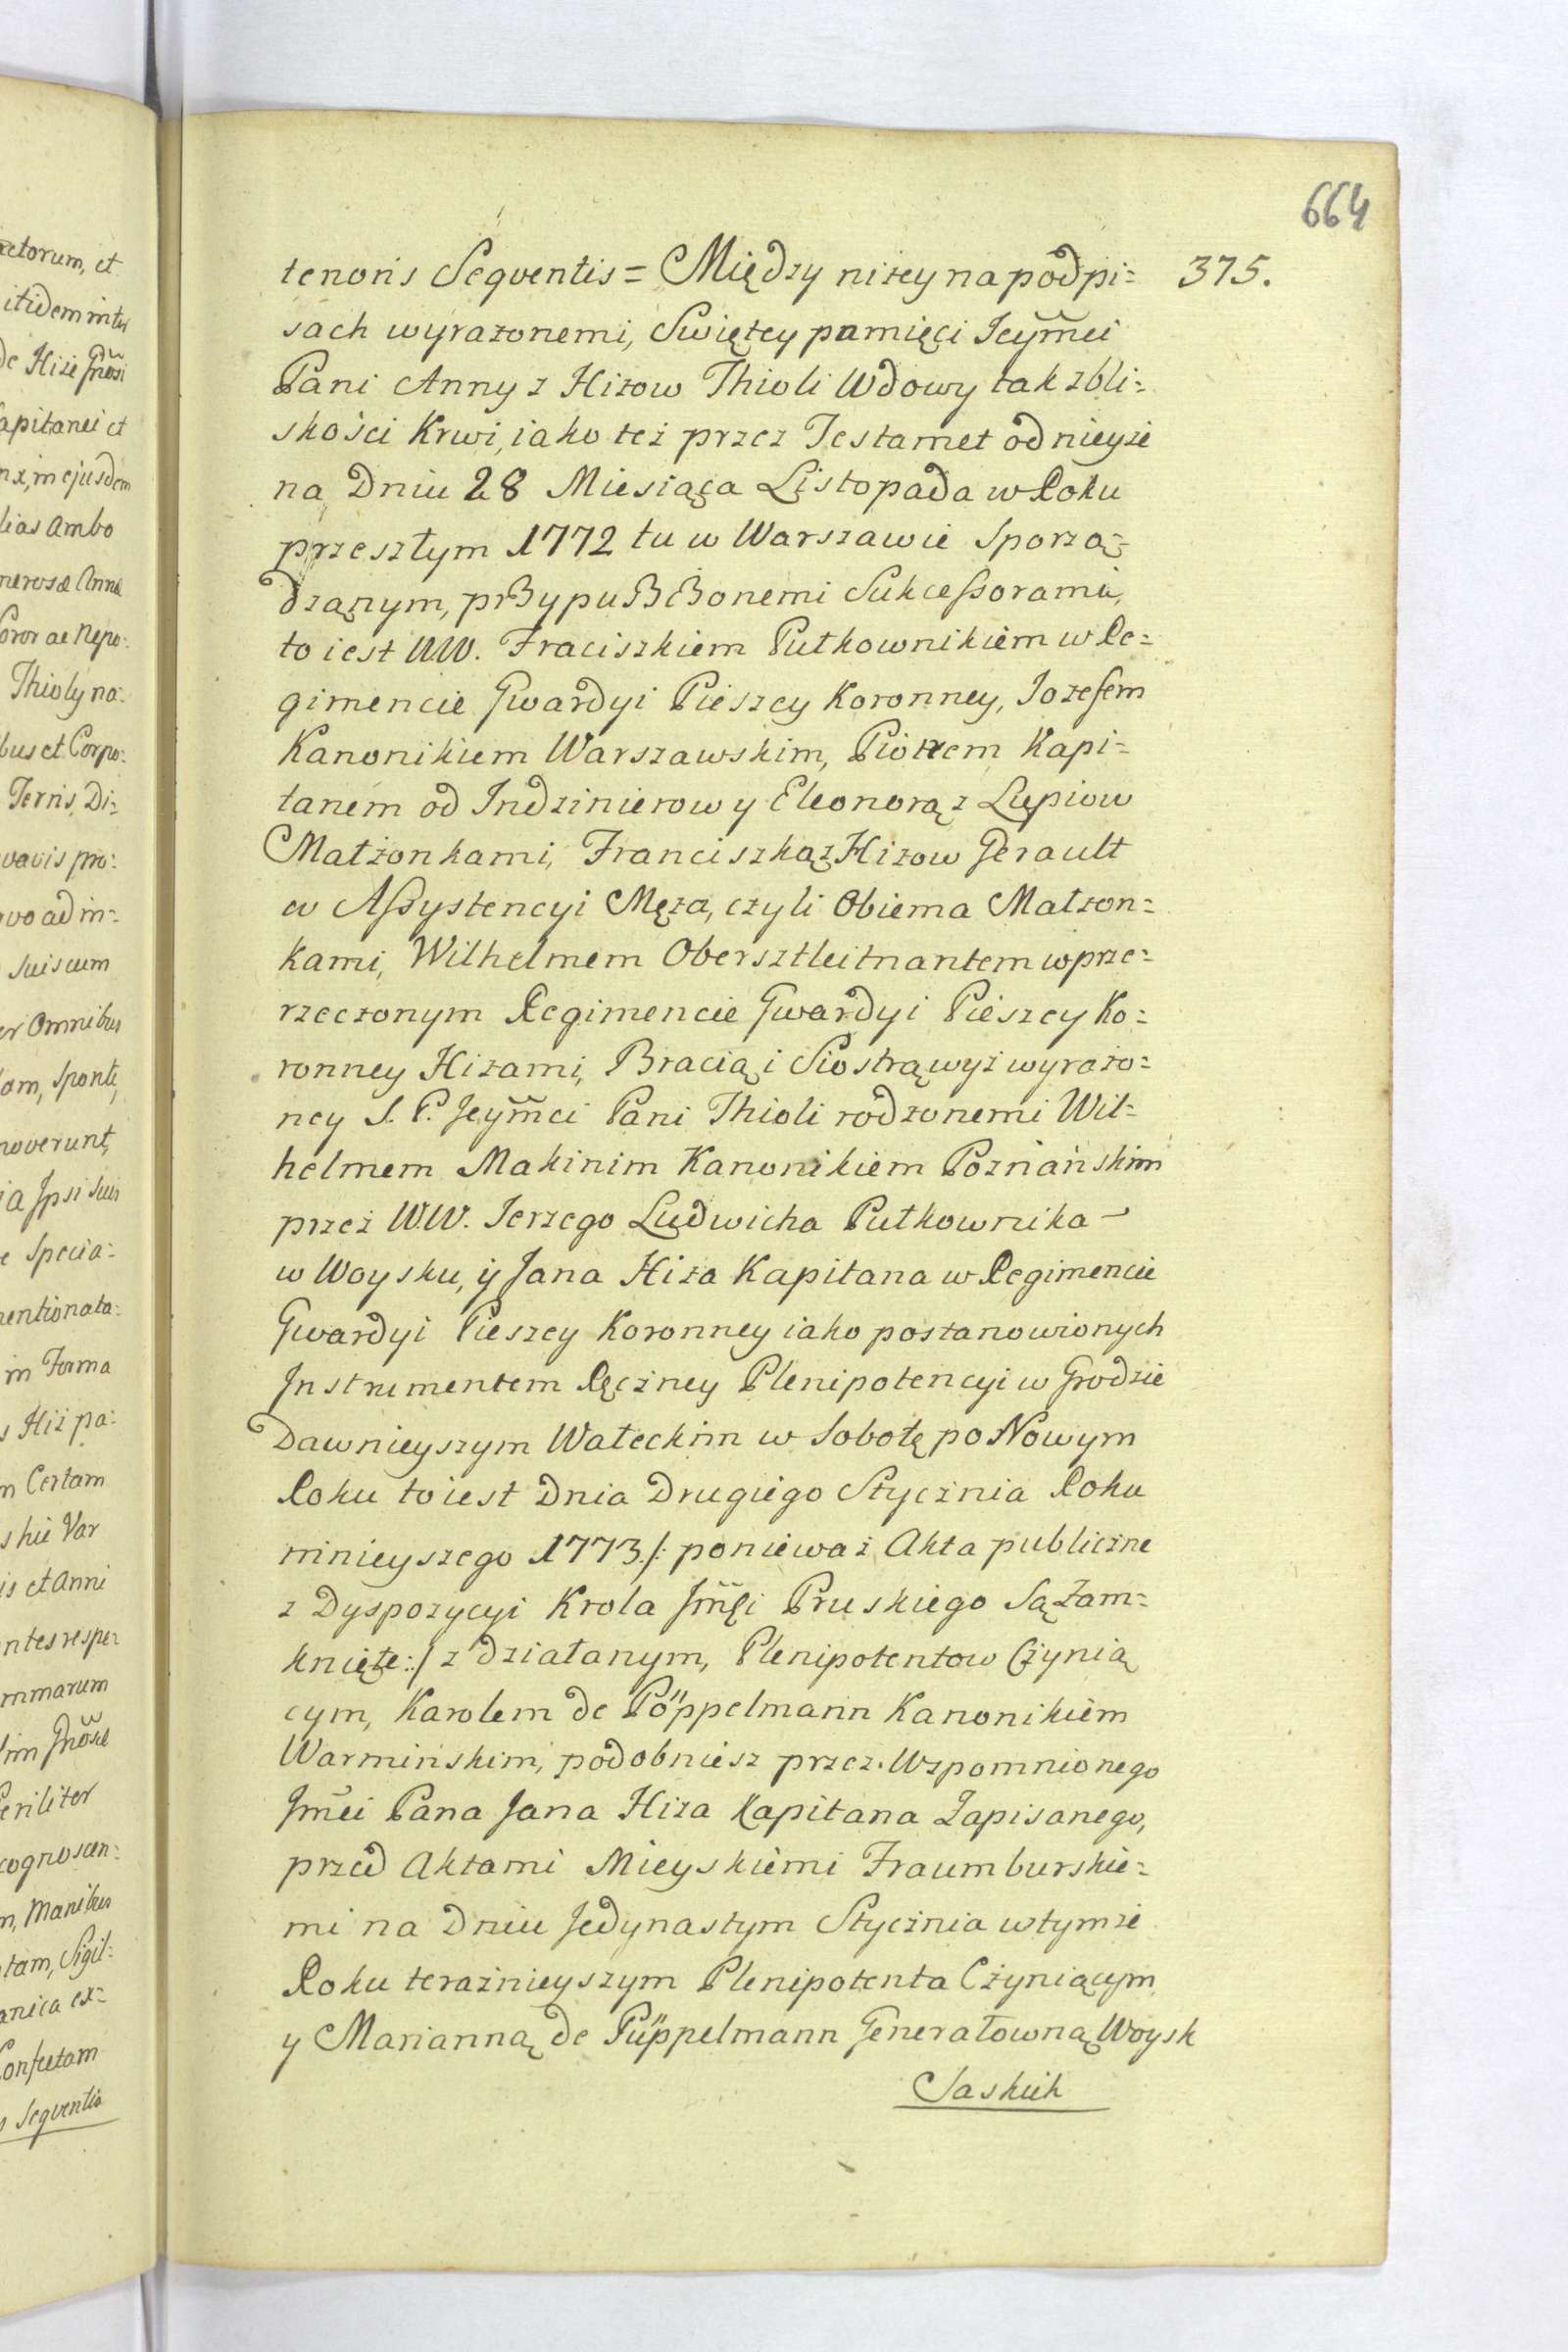 664
375.
tenoris Seqventis = Między niżey na podpi=
sach wyrażonemi, Swiętey pamięci Jeÿm̃ci
Pani Anny z Hiżow Thioli Wdowy tak zbli=
skości Krwi, iako też przez Testamet od nieyże
na Dniu 28 Miesiąca Listopada w Roku
przeszłym 1772 tu w Warszawie Sporzą=
dząnym, przypuszczonemi Sukceßorami,
to iest WW. Fraciszkiem Pułkownikiem w Re=
gimencie Gwardyi Pieszey Koronney, Jozefem
Kanonikiem Warszawskim, Piotrem Kapi=
tanem od Indzinierow y Eleonorą z Lupiow
Małżonkami, Franciszką z Hiżow Gerault
w Aßystencyi Męża, czyli Obiema Małżon=
kami, Wilhelmem Obersztleitnantem w prze=
rzeczonym Regimencie Gwardyi Pieszey Ko=
ronney Hiżami, Bracią i Siostrą wyż wyrażo=
ney S. P. Jeÿm̃ci Pani Thioli rodzonemi Wil=
helmem Makinim Kanonikiem Poznańskim
przez W.W. Jerzego Ludwicha Pułkownika
w Woysku, ÿ Jana Hiża Kapitana w Regimencie
Gwardyi Pieszey Koronney iako postanowionych
Instrumentem Ręczney Plenipotencyi w Grodzie
Dawnieyszym Wałeckim w Sobotę po Nowym
Roku to iest Dnia Drugiego Stycznia Roku
ninieyszego 1773 /: ponieważ Akta publiczne
z Dyspozycyi Krola Jm̃ci Pruskiego Są Zam=
knięte :/ z działanym, Plenipotentow Czynią
cym, Karolem de Pöppelmann Kanonikiem
Warmińskim, podobniesz przez Wzpomnionego
Jm̃ci Pana Jana Hiża Kapitana Zapisanego,
przed Aktami Mieyskiemi Fraumburskie=
mi na Dniu Jedynastym Stycznia w tymże
Roku teraźnieyszym Plenipotenta Czyniącym
y Marianną de Püppelmann Generałowną Woysk
Saskich
itidem inter
de Hiże
apitanei et
ejusdem
lias ambo
Thioly na=
bus et Corpo=
Terris, Di=
pro=
vo ad in=
suis cum
er Omnibus
Sponte,
noverunt,
ia Ipsi suis
e Specia=
mentionata=
in Forma
s Hiż pa=
m Certam
skie Var
is et anni
ntes respe=
mmarum
eriliter
cognoscen=
m, Manibus
tam, Sigil=
anica ex=
Confectam
s Seqventis